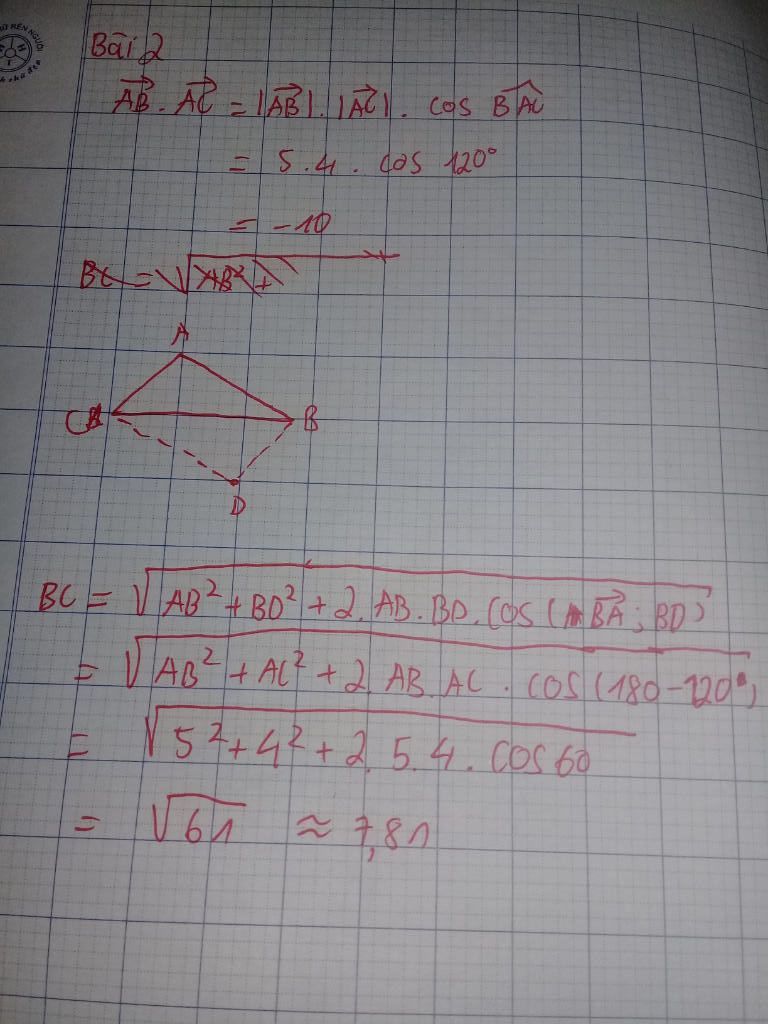 RÈN NGƯỜI
Bài 2
$\overrightarrow{AB} . \overrightarrow{AC} = |\overrightarrow{AB}| . |\overrightarrow{AC}| . cos \widehat{BAC}$
= 5 . 4 . cos 120°
= -10
BC = √AB² +
A
C B
D
BC = √AB² + BD² + 2. AB. BD. cos (BA ; BD)
= √AB² + AC² + 2 AB. AC . cos (180 - 120°)
= √5² + 4² + 2. 5. 4. cos 60
= √61 ≈ 7,81